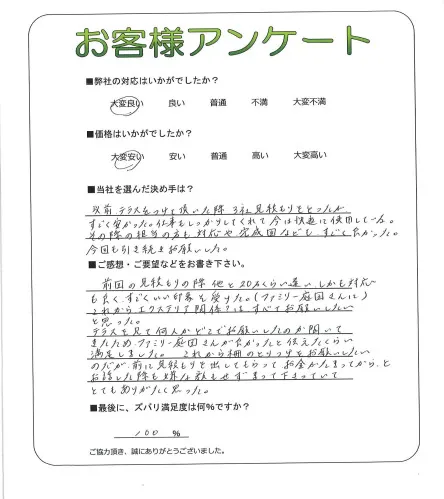 お客様アンケート
■弊社の対応はいかがでしたか?
大変良い 良い 普通 不満 大変不満
■価格はいかがでしたか?
大変安い 安い 普通 高い 大変高い
■当社を選んだ決め手は?
以前、テラスをつけて頂いた際 3社見積もりをとったが
すごく安かった。仕事もしっかりしてくれて今は快適に使用している。
その際の担当の方も対応や完成図なども、すごく良かった。
今回も引き続きお願いした。
■ご感想・ご要望などをお書き下さい。
前回の見積もりの際 他と20万くらい違い しかも対応
も良く、すごくいい印象を受けた。(ファミリー庭園さんに)
これからエクステリア関係は、すべてお願いしたい
と思った。
テラスを見て何人かどこでお願いしたのか聞いて
きたため、ファミリー庭園さんが良かったと伝えたくらい
満足しました。これから柵のとりつけをお願いしたい
のだが、前に見積もりを出してもらって お金がたまってから、と
お話した際も嫌な顔もせず 下さっていて
とてもありがたく思った。
■最後に、ズバリ満足度は何%ですか?
100 %
ご協力頂き、誠にありがとうございました。